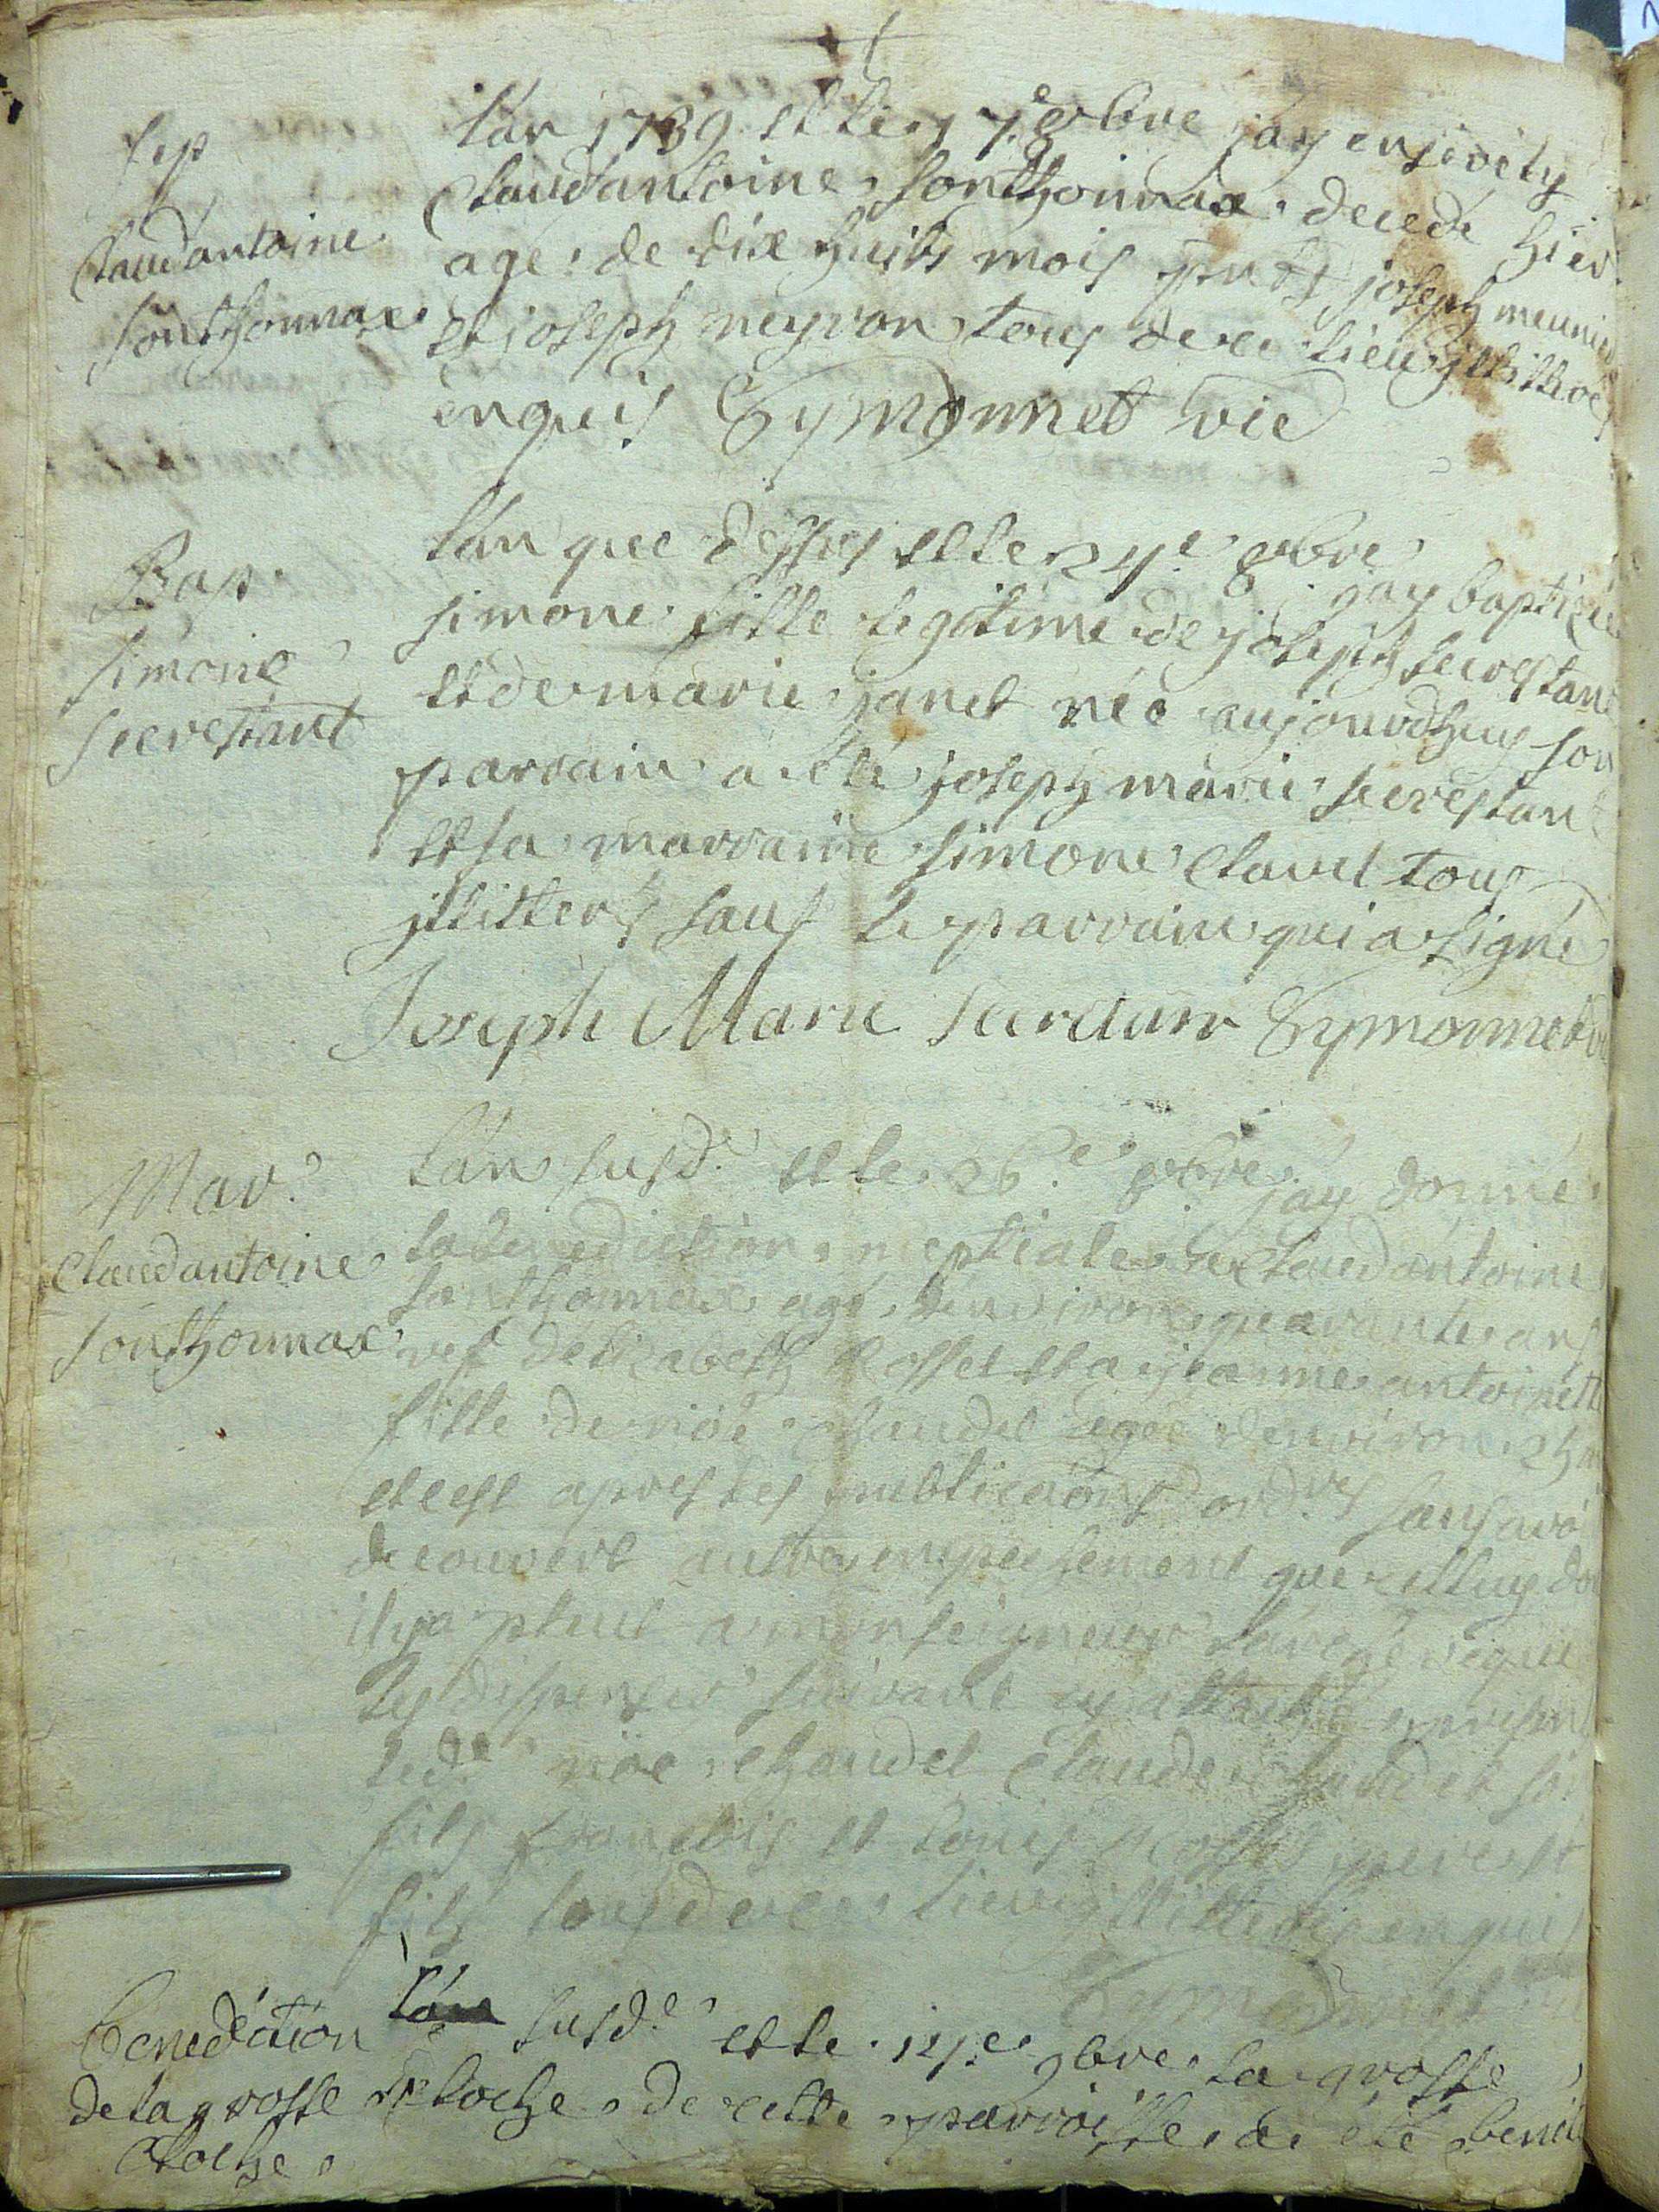 Sep
Claudantoine
Sonthonnax
L'an 1739 et le 17.e 8bre j'ay ensevely
Claudantoine Sonthonnax decedé hier
agé de dix huits mois pnts joseph meunier
et joseph neyron tous de ce lieu illitteres
enquis Eymonnet vic
Bap
simone
secrestant
L'an que dessus et le 24.e 8bre j'ay baptizée
simone fille legitime de joseph secrestant
et de marie janet née aujourdhuy son
parrain a été joseph marie secrestant
et sa marraine simone clavel tous
jllitterés sauf le parrain qui a signé
Joseph Marie Secretan Eymonnet vic
Mar.
Claudantoine
Sonthonnax
L'an susd. et le 26.e 8bre j'ay donné
la benediction nuptiale a Claudantoine
Sonthonnax agé d'environ quarante ans
vef d'elizabeth Rosset et a jeanne antoinette
fille de noé chaudet agée d'environ
et cest apres les publicaons ord.res sans avoi
decouvert autre empeschement que celluy do
il y a pleut a monseigneur l'archeveque
les dispenser suivant cy attaché
led.t noé chaudet claude chaudet so
fils francois et Louis Rosset pere et
fils tous de ce lieu illitterés enquis
Eymonnet vic
Benediction
de la grosse
Cloche
L'an susd.e et le 12.e 9bre la grosse
cloche de cette parroisse a été benit